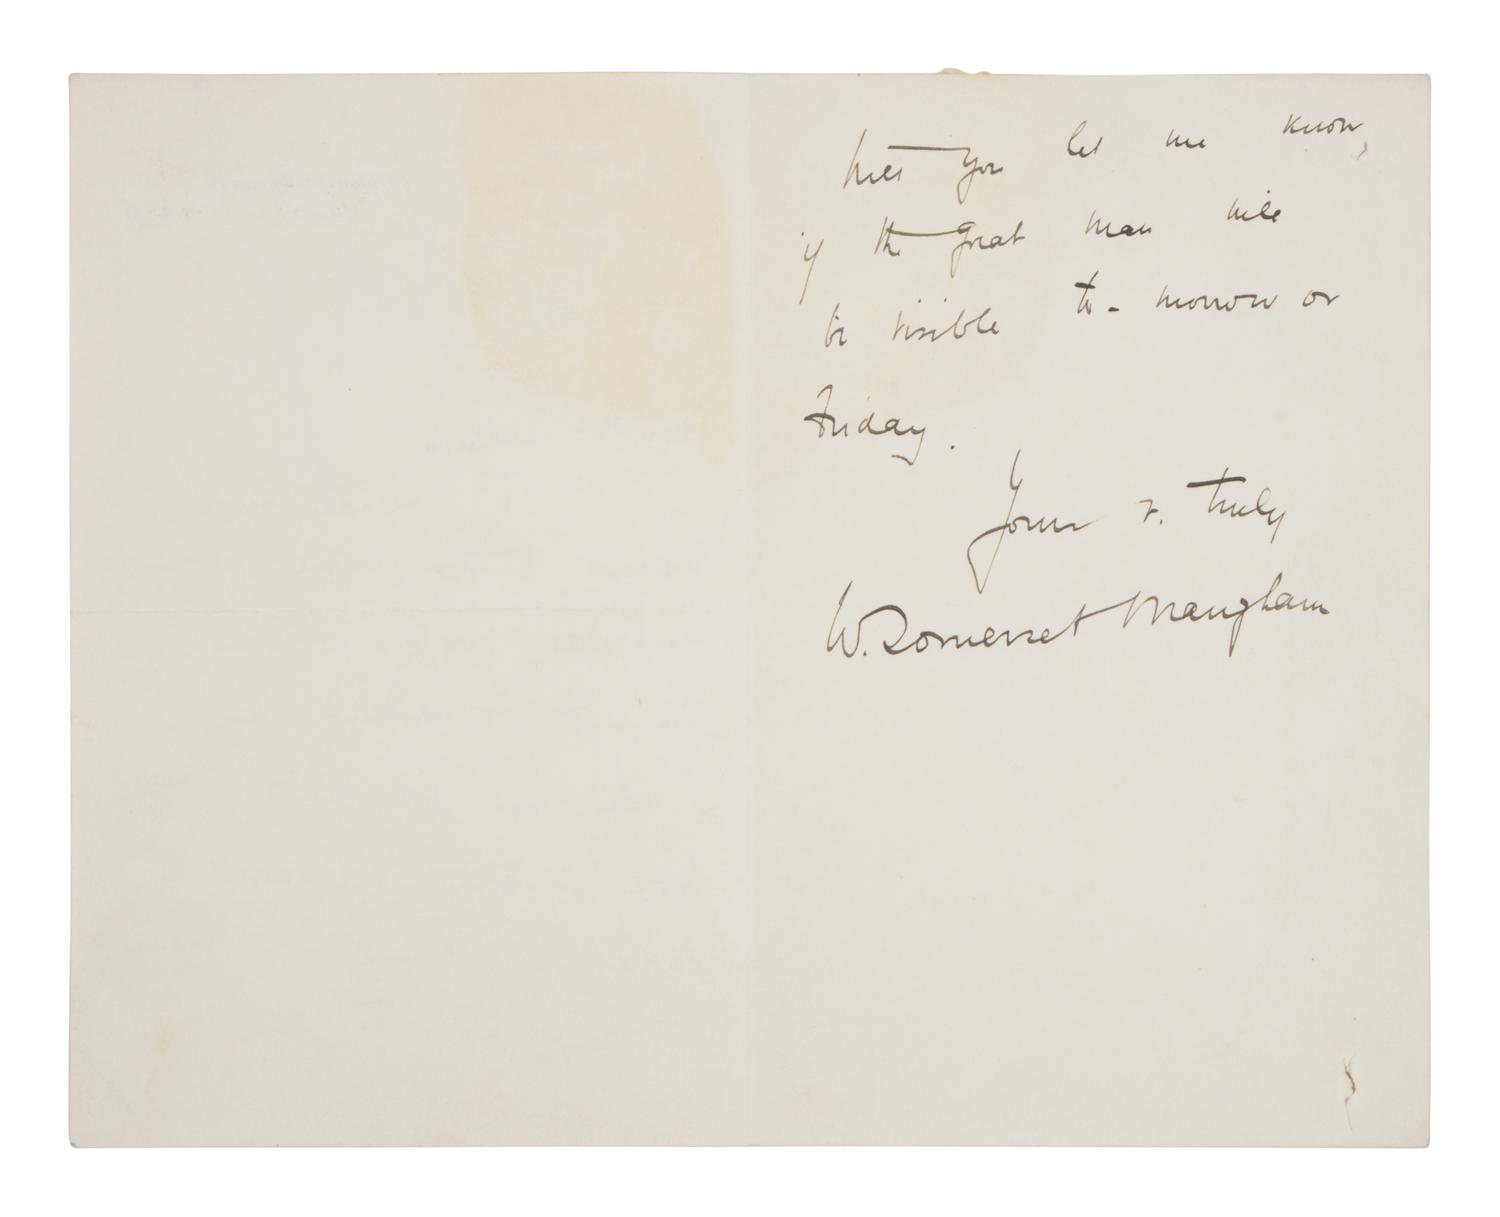 Will you let me know,
if the great man will
be visible to-morrow or
Friday.
Yours v. truly
W. Somerset Maugham